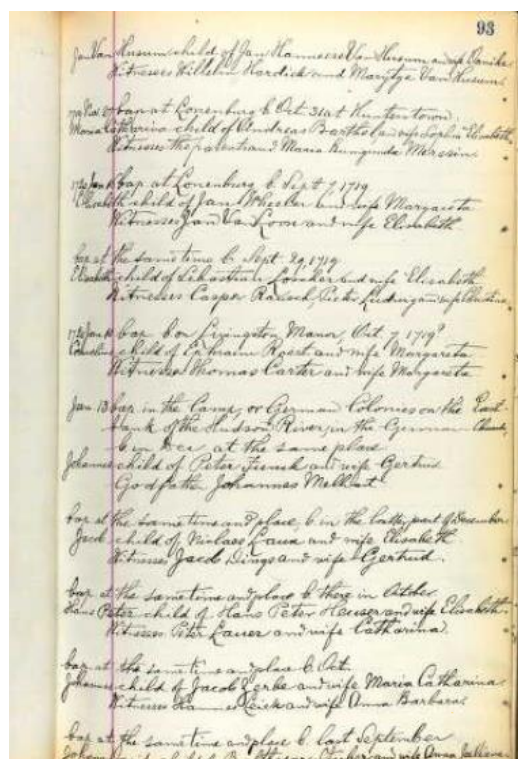 93
Jan Van Husum child of Jan Hannesse Van Husum and wife Danike
Witnesses Wilhelm Hardick and Marytye Van Husum.
Nov. 27 bap at Lonenburg b. Oct. 31 at Hunterstown.
Maria Catharina child of Andreas Barthel and wife Sophia Elisabeth
Witnesses the parents and Maria Kunigunda
bap at Lonenburg b. Sept 7, 1719
Elisabeth child of Jan Wheeler and wife Margareta
Witnesses Jan Van Loon and wife Elisabeth
bap at the same time b. Sept. 29, 1719
Elisabeth child of Sebastian and wife Elisabeth
Witnesses Casper Pieter and wife Christina
Jan 10 bap b on Livingston Manor, Oct. 7, 1719
Cornelius child of Ephraim Roost and wife Margareta
Witnesses Thomas Carter and wife Margareta
Jan. 13 bap in the Camp, or German Colonies on the East
bank of the Hudson River, in the German Church,
b in Dec at the same place
Johannes child of Peter and wife Gertrud
Godfather Johannes
bap at the same time and place, b. in the latter part of December
Jacob child of Niclaes Laux and wife Elisabeth
Witnesses Jacob Dings and wife Gertrud.
bap at the same time and place b there in October
Hans Peter child of Hans Peter Heuser and wife Elisabeth.
Witnesses Peter Lauer and wife Catharina.
bap at the same time and place b Oct.
Johannes child of Jacob Zerbe and wife Maria Catharina
Witnesses Hannes and wife Anna Barbara.
bap at the same time and place b. last September
and wife Anna Juliana